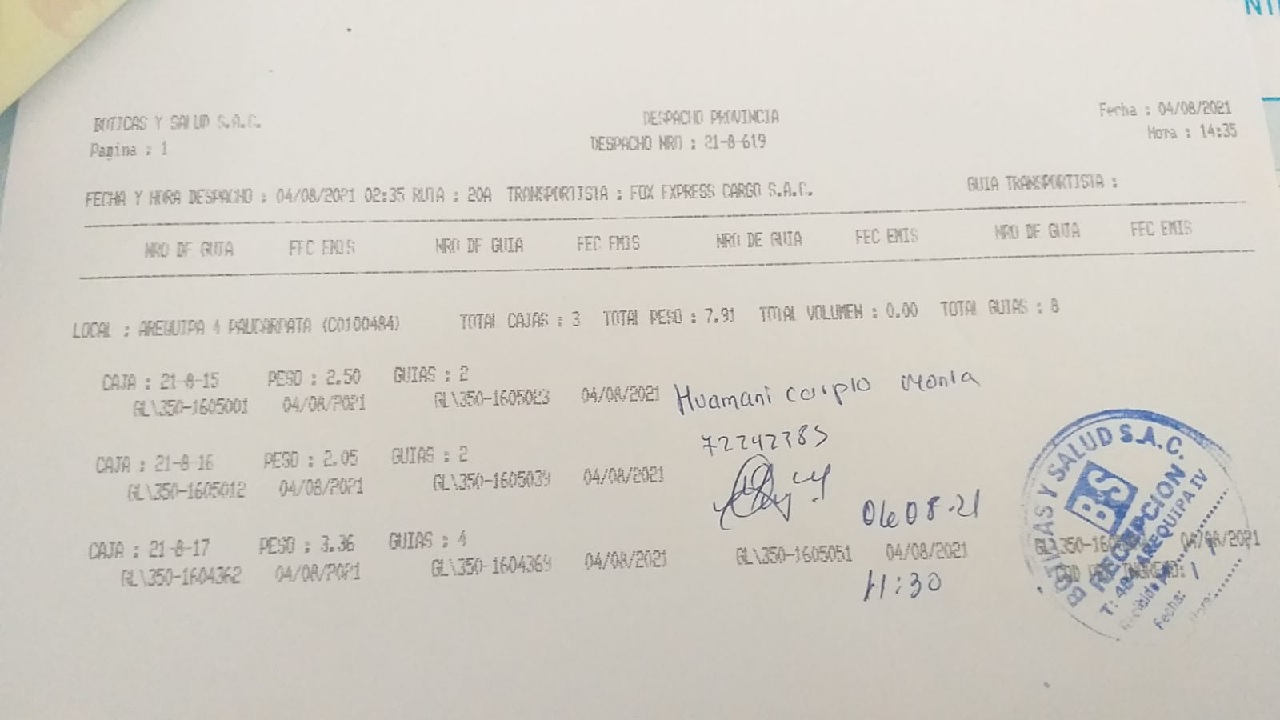 BOTICAS Y SALUD S.A.C.
Pagina : 1
DESPACHO PROVINCIA
DESPACHO NRO : 21-8-619
Fecha : 04/08/2021
Hora : 14:35
FECHA Y HORA DESPACHO : 04/08/2021 02:35 RUTA : 20A TRANSPORTISTA : FOX EXPRESS CARGO S.A.C.
GUIA TRANSPORTISTA :
NRO DE GUIA FEC EMIS NRO DE GUIA FEC EMIS NRO DE GUIA FEC EMIS NRO DE GUIA FEC EMIS
LOCAL : AREQUIPA 4 PAUCARPATA (C0100484) TOTAL CAJAS : 3 TOTAL PESO : 7.91 TOTAL VOLUMEN : 0.00 TOTAL GUIAS : 8
CAJA : 21-8-15 PESO : 2.50 GUIAS : 2
GL\350-1605001 04/08/2021 GL\350-1605023 04/08/2021
Huamani
72242785
CAJA : 21-8-16 PESO : 2.05 GUIAS : 2
GL\350-1605012 04/08/2021 GL\350-1605039 04/08/2021
CAJA : 21-8-17 PESO : 3.36 GUIAS : 4
GL\350-1604362 04/08/2021 GL\350-1604369 04/08/2021 GL\350-1605051 04/08/2021 04/08/2021
06 08-21
11:30
BOTICAS Y SALUD S.A.C.
BS
RECEPCION
T: 484 AREQUIPA IV
Recibido
Fecha: